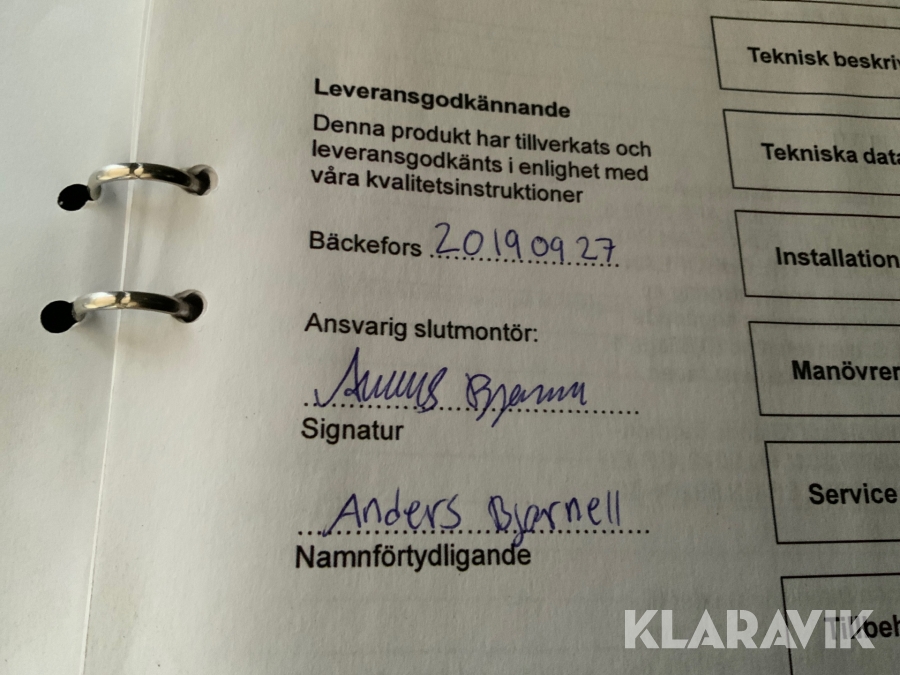 Leveransgodkännande
Denna produkt har tillverkats och
leveransgodkänts i enlighet med
våra kvalitetsinstruktioner
Bäckefors 20190927
Ansvarig slutmontör:
Signatur
Anders Bjarnell
Namnförtydligande
Teknisk
Tekniska data
Installation
Service
KLARAVIK